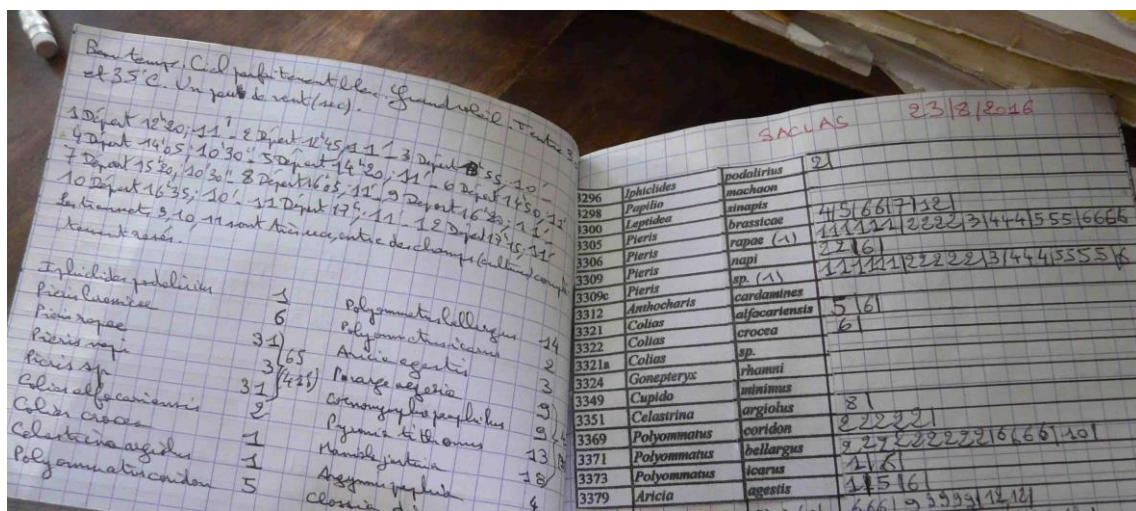 Beau temps. Ciel parfaitement bleu. Grand soleil. Entre 3
et 35°C. Un peu de vent (sec).
1 Départ 12h20; 11' - 2 Départ 12h45, 11' - 3 Départ 55, 10' -
4 Départ 14h05; 10'30" - 5 Départ 14h20; 11' - 6 Départ 14h50, 11'
7 Départ 15h20; 10'30" 8 Départ 16h05, 11' - 9 Départ 16h20; 11' -
10 Départ 16h35; 10' 11 Départ 17h, 11' - 12 Départ 17h15, 11'
9, 10, 11 sont entre des champs (cultures)
rasés.
Iphiclides podalirius 1
Pieris brassicae 6
Pieris rapae 31
Pieris napi 3 65
Pieris sp 31
Colias alfacariensis 2
Colias crocea 1
Celastrina argiolus 1
Polyommatus coridon 5
Polyommatus bellargus 14
Polyommatus icarus 2
Aricia agestis 3
Pararge aegeria 9
Coenonympha pamphilus 9
Pyronia tithonus 13
Maniola jurtina 18
Argynnis paphia 4
SACLAS 23/8/2016
3296 Iphiclides podalirius 2|
3298 Papilio machaon
3300 Leptidea sinapis
3305 Pieris brassicae 4|5|66|7|12|
3306 Pieris rapae (1) 111111|2222|3|444|555|6666
3309 Pieris napi 22|6|
3309c Pieris sp. (1) 11111|22222|3|444|5555|6
3312 Anthocharis cardamines
3321 Colias alfacariensis 5|6|
3322 Colias crocea 6|
3321a Colias sp.
3324 Gonepteryx rhamni
3349 Cupido minimus
3351 Celastrina argiolus 8|
3369 Polyommatus coridon 22222|
3371 Polyommatus bellargus 222222222|6|66|10|
3373 Polyommatus icarus 1|6|
3379 Aricia agestis 1|5|6|
666|99999|12,12|